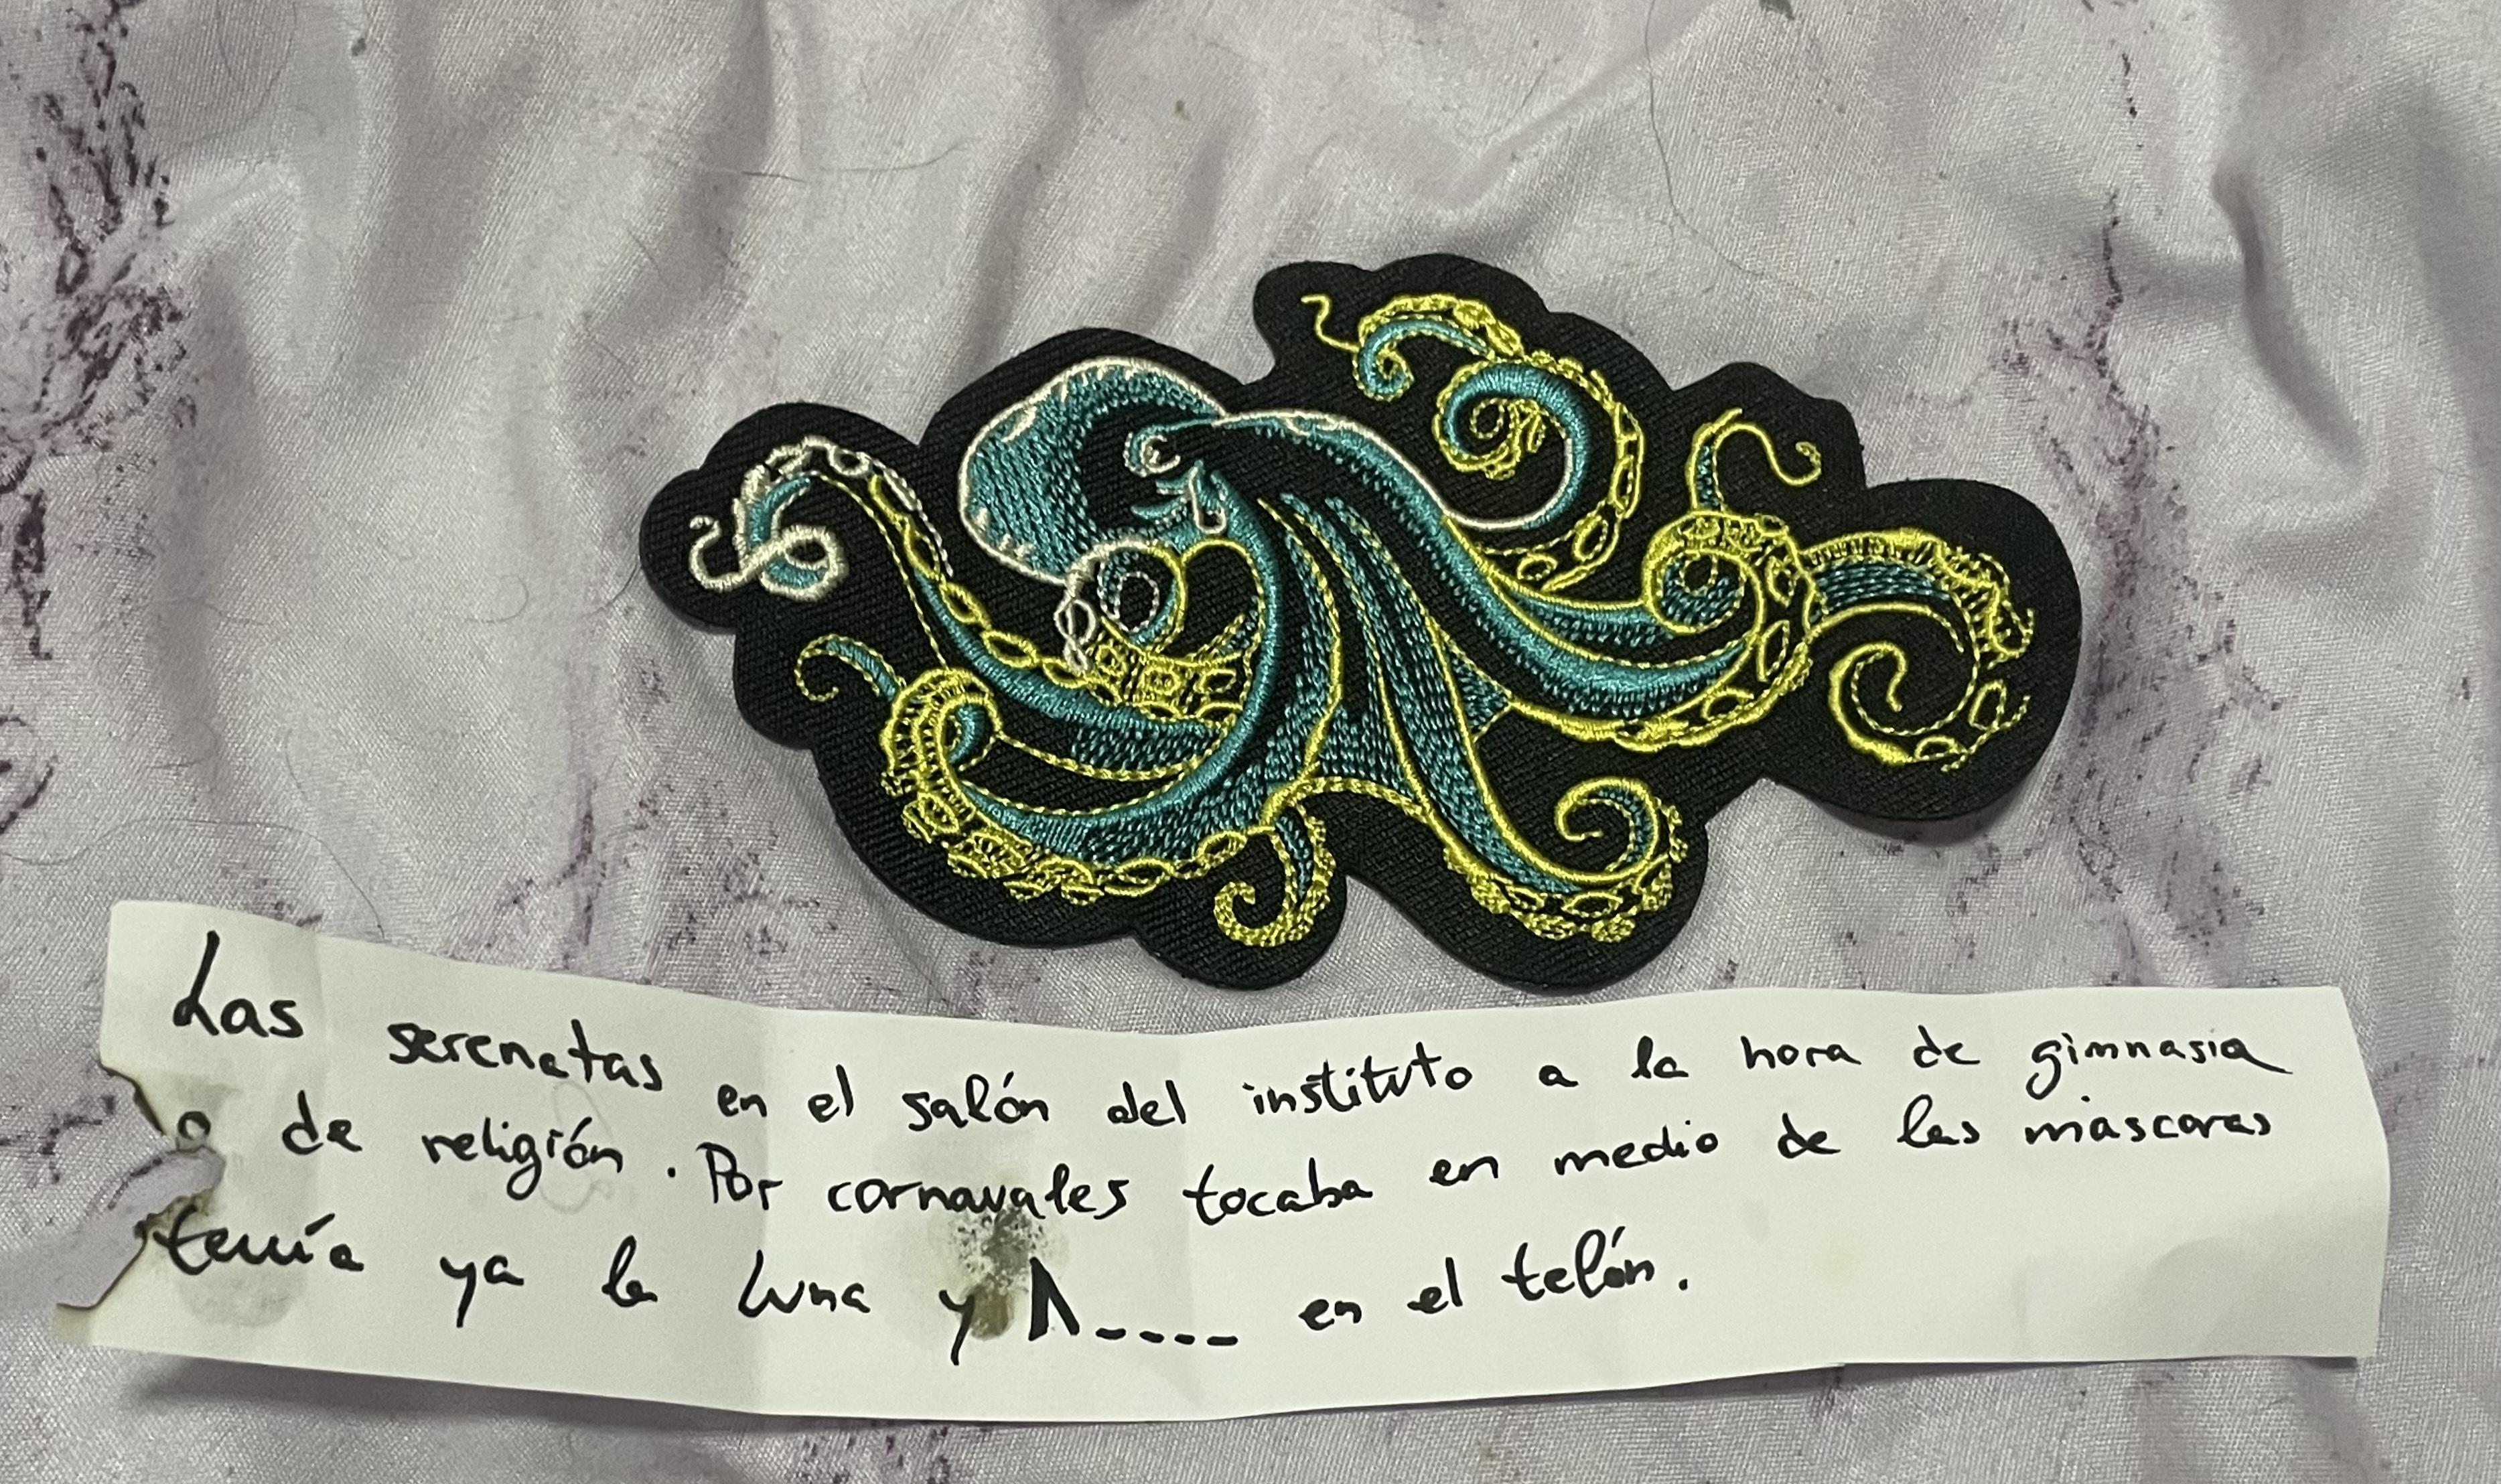 Las serenatas en el salón del instituto a la hora de gimnasia
o de religión. Por carnavales tocaba en medio de las máscaras
tenía ya la luna y Λ---- en el telón.